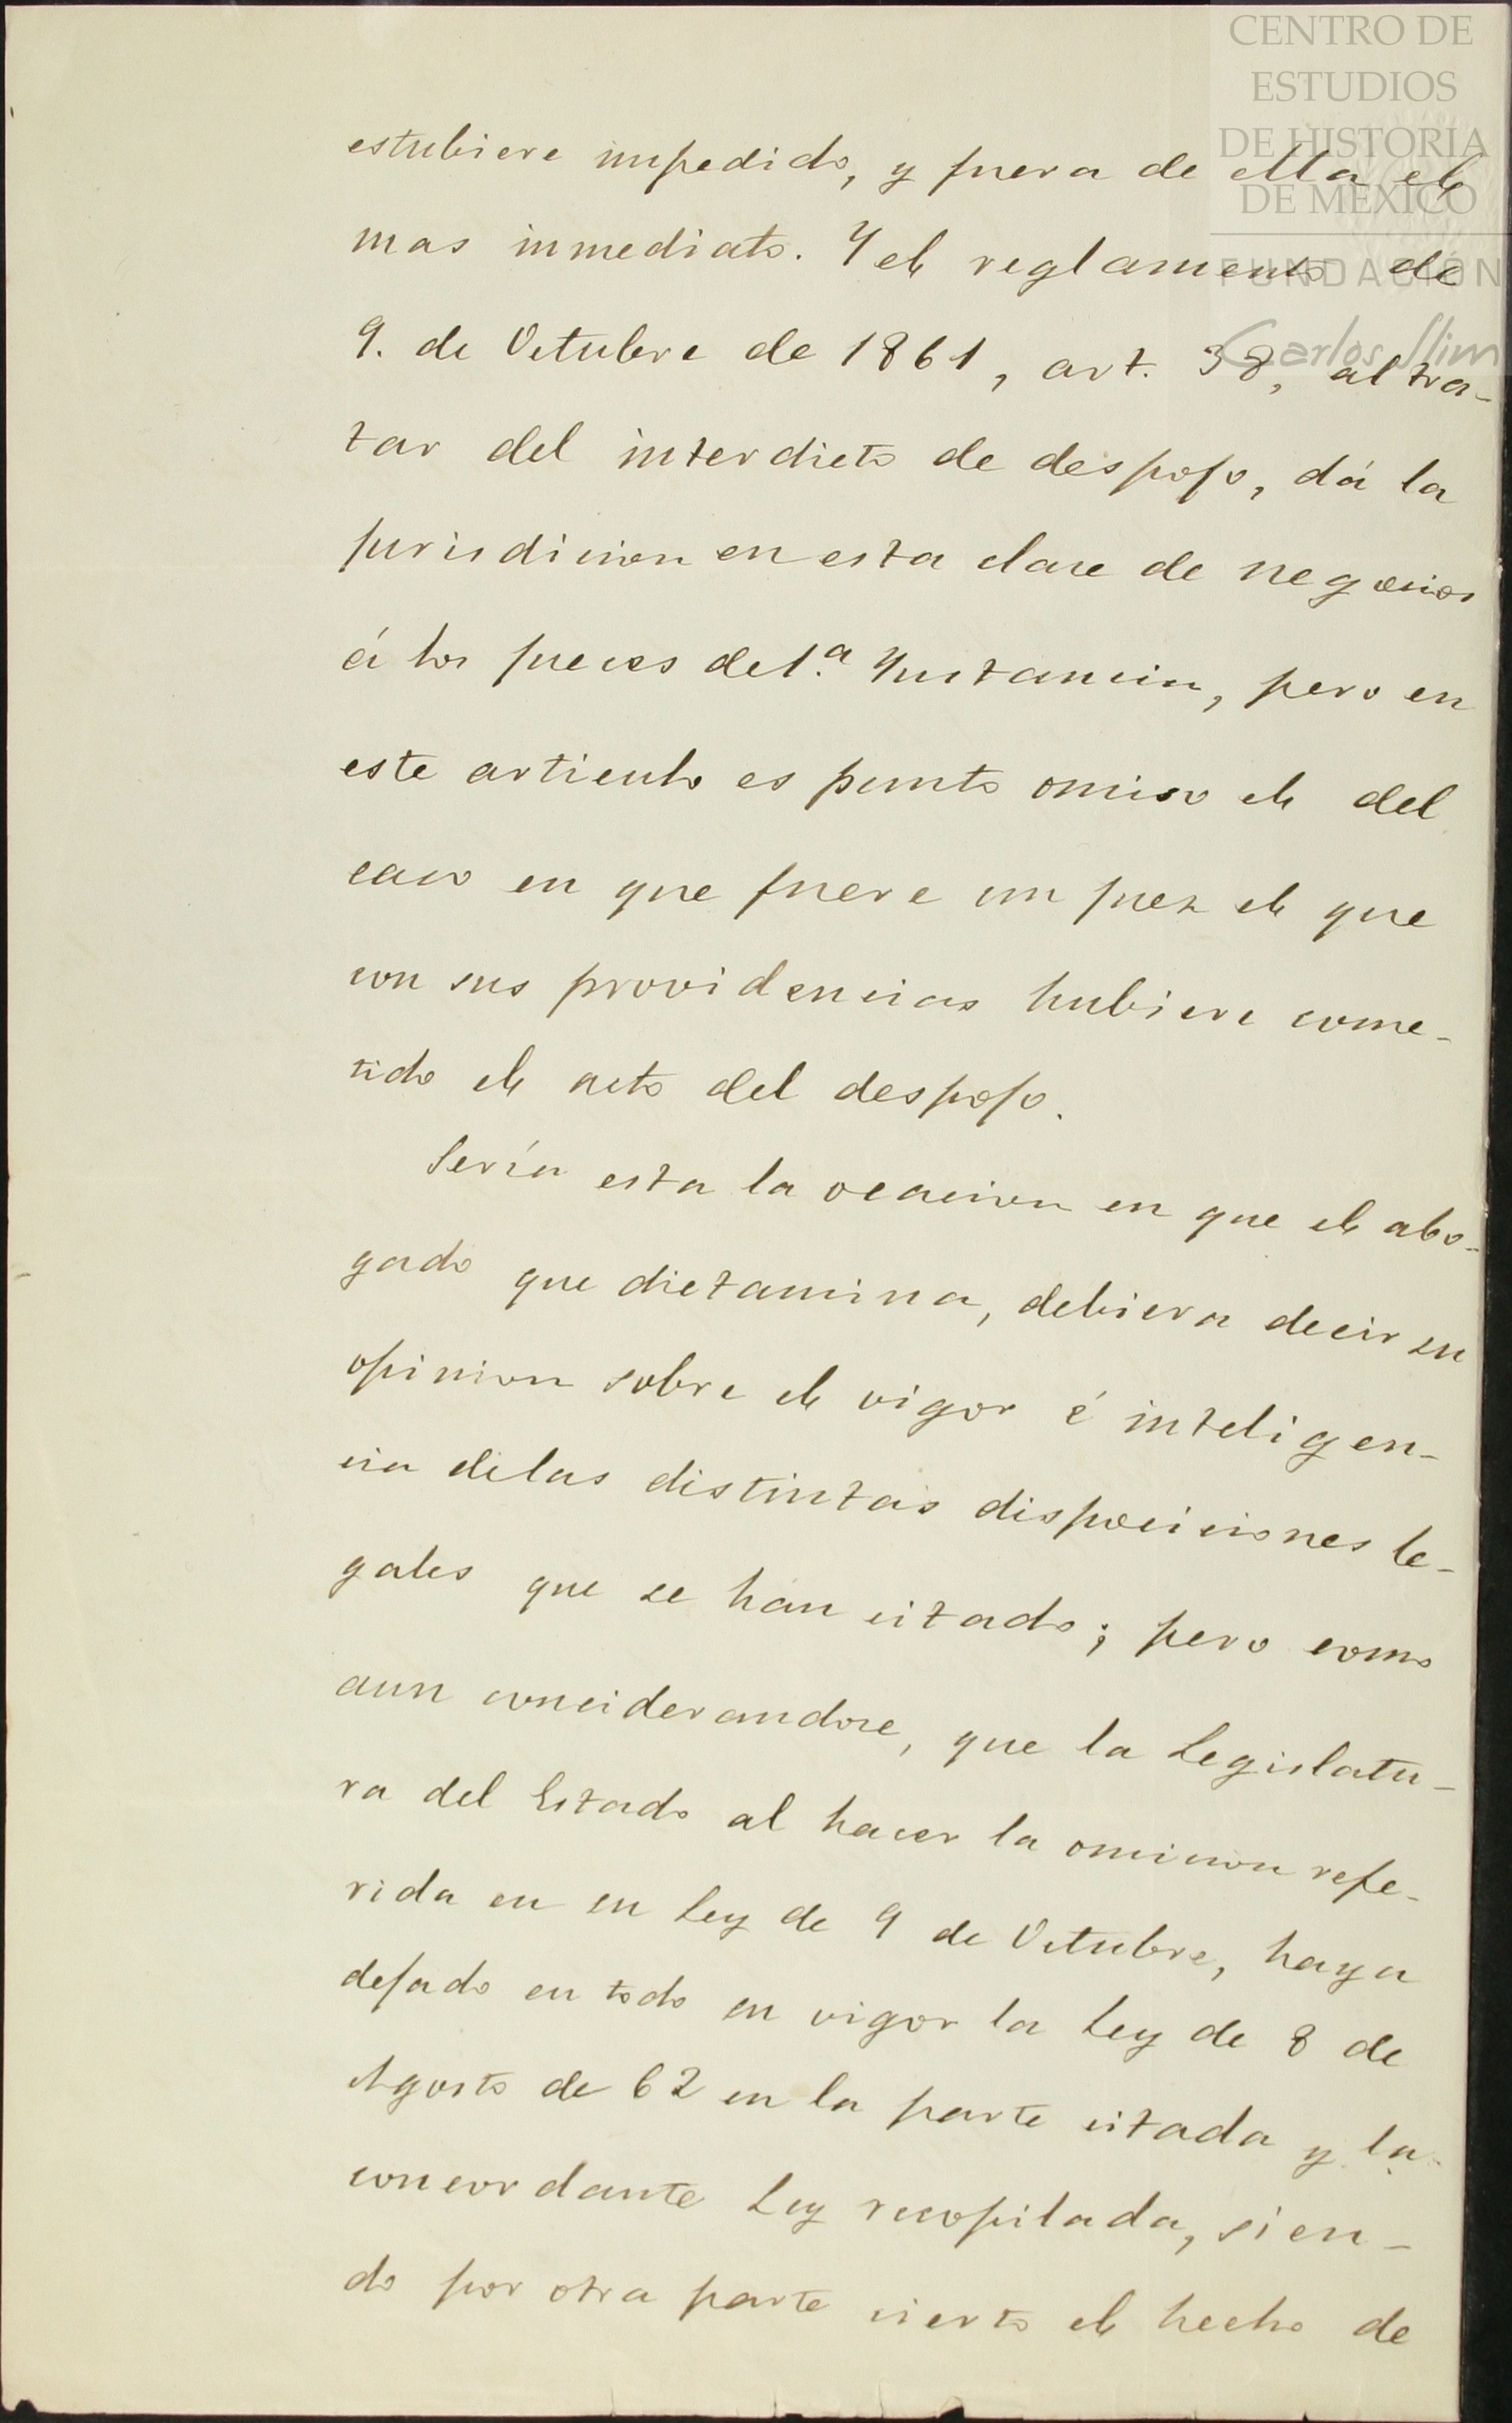 CENTRO DE
ESTUDIOS
DE HISTORIA
DE MÉXICO
FUNDACIÓN
Carlos Slim
estubiere impedido, y fuera de ella el
mas inmediato. Y el reglamento de
9. de Octubre de 1861, art. 38, al tra-
tar del interdicto de despojo, dá la
jurisdicion en esta clase de negocios
á los jueces de 1.ª Instancia, pero en
este articulo es punto omiso el del
caso en que fuere un juez el que
con sus providencias hubiere come-
tido el acto del despojo.
Sería esta la ocacion en que el abo-
gado que dictamina, debiera decir su
opinion sobre el vigor é inteligen-
cia delas distintas dispociciones le-
gales que se han citado; pero como
aun conciderandose, que la Legislatu-
ra del Estado al hacer la omicion refe-
rida en su Ley de 9 de Octubre, haya
dejado en todo su vigor la Ley de 8 de
Agosto de 62 en la parte citada y la
concordante Ley recopilada, sien-
do por otra parte cierto el hecho de